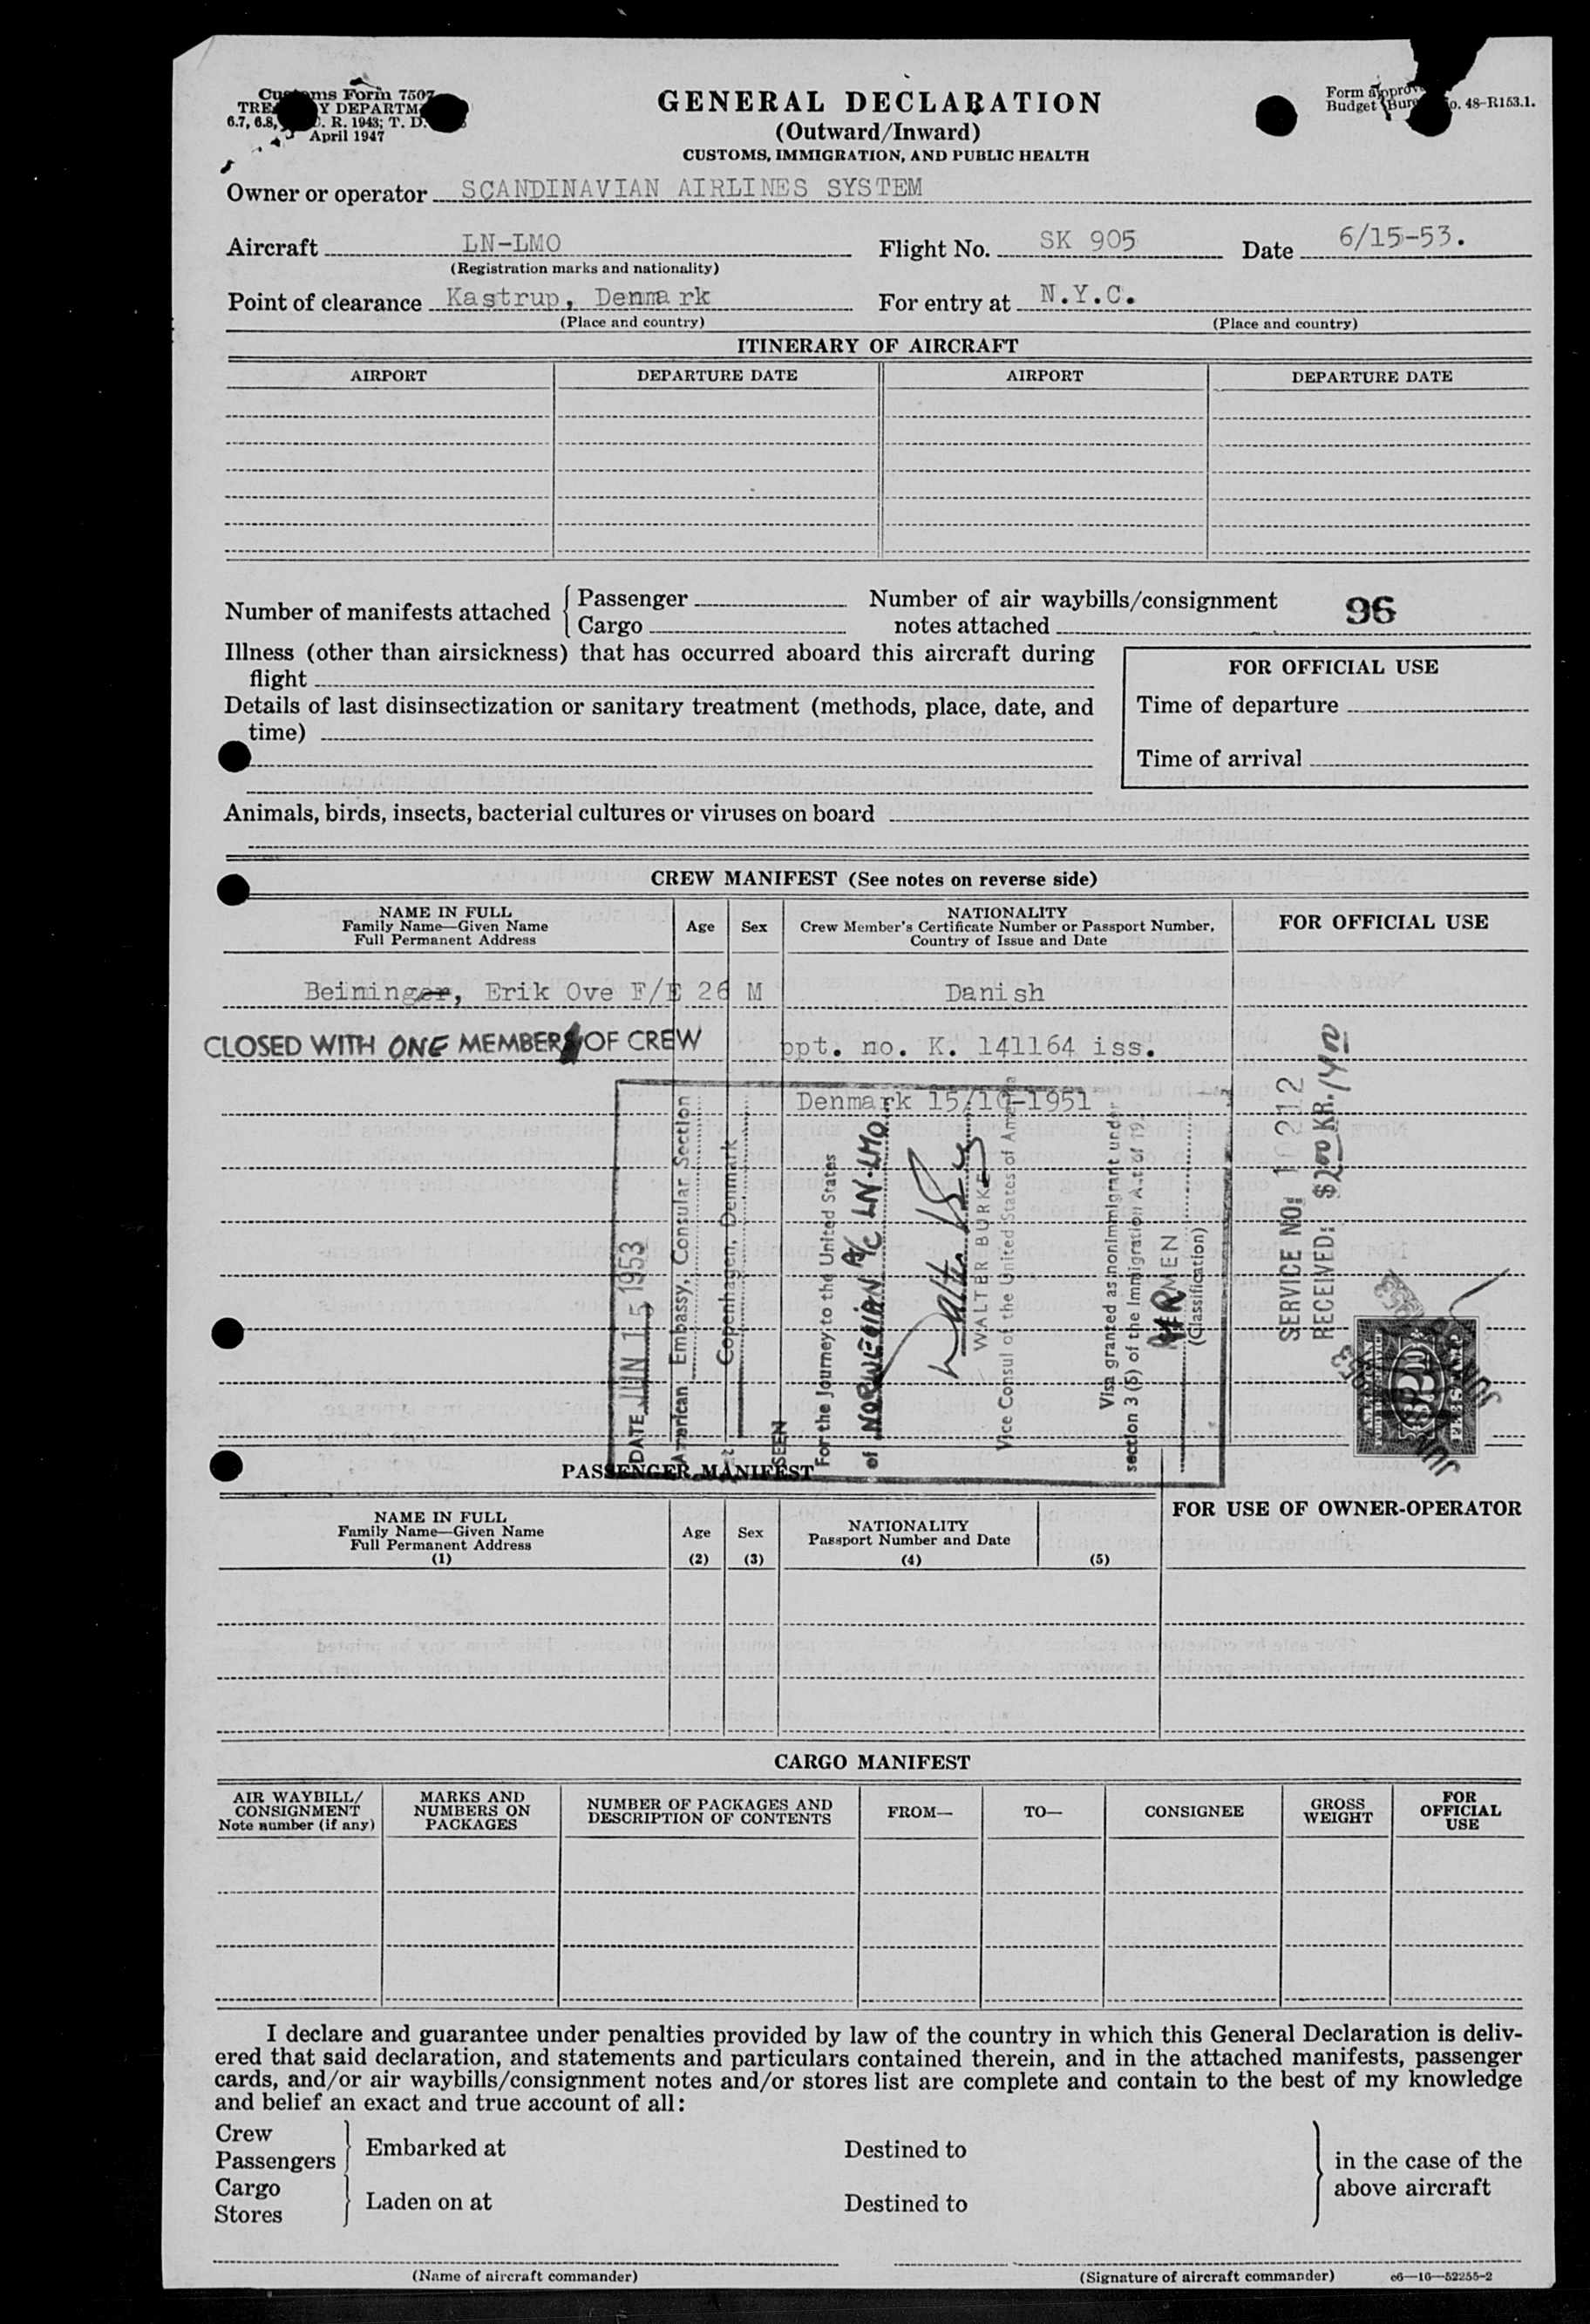 Customs Form 7507
TREASURY DEPARTMENT
6.7, 6.8, C. R. 1943; T. D.
April 1947
Form approved
Budget Bureau No. 48-R153.1.
GENERAL DECLARATION
(Outward/Inward)
CUSTOMS, IMMIGRATION, AND PUBLIC HEALTH
Owner or operator SCANDINAVIAN AIRLINES SYSTEM
Aircraft LN-LMO Flight No. SK 905 Date 6/15-53.
(Registration marks and nationality)
Point of clearance Kastrup, Denmark For entry at N.Y.C.
(Place and country) (Place and country)
ITINERARY OF AIRCRAFT
AIRPORT DEPARTURE DATE AIRPORT DEPARTURE DATE
Number of manifests attached { Passenger
Cargo
Number of air waybills/consignment
notes attached
96
Illness (other than airsickness) that has occurred aboard this aircraft during
flight
Details of last disinsectization or sanitary treatment (methods, place, date, and
time)
FOR OFFICIAL USE
Time of departure
Time of arrival
Animals, birds, insects, bacterial cultures or viruses on board
CREW MANIFEST (See notes on reverse side)
NAME IN FULL
Family Name—Given Name
Full Permanent Address
Age
Sex
NATIONALITY
Crew Member's Certificate Number or Passport Number,
Country of Issue and Date
FOR OFFICIAL USE
Beininger, Erik Ove F/E 26 M Danish
CLOSED WITH ONE MEMBER OF CREW
ppt. no. K. 141164 iss.
Denmark 15/10-1951
DATE JUN 15 1953
American Embassy, Consular Section
at Copenhagen, Denmark
SEEN
For the Journey to the United States
of NORWEGIAN A/C LN-LMO
WALTER BURKE
Vice Consul of the United States of America
Visa granted as nonimmigrant under
section 3 (5) of the Immigration Act of 192
AIRMEN
(Classification)
SERVICE NO: 10212
RECEIVED: $2.00 KR.
PASSENGER MANIFEST
NAME IN FULL
Family Name—Given Name
Full Permanent Address
(1)
Age
(2)
Sex
(3)
NATIONALITY
Passport Number and Date
(4)
(5)
FOR USE OF OWNER-OPERATOR
CARGO MANIFEST
AIR WAYBILL/
CONSIGNMENT
Note number (if any)
MARKS AND
NUMBERS ON
PACKAGES
NUMBER OF PACKAGES AND
DESCRIPTION OF CONTENTS
FROM—
TO—
CONSIGNEE
GROSS
WEIGHT
FOR
OFFICIAL
USE
I declare and guarantee under penalties provided by law of the country in which this General Declaration is deliv-
ered that said declaration, and statements and particulars contained therein, and in the attached manifests, passenger
cards, and/or air waybills/consignment notes and/or stores list are complete and contain to the best of my knowledge
and belief an exact and true account of all:
Crew
Passengers
Embarked at Destined to
Cargo
Stores
Laden on at Destined to
in the case of the
above aircraft
(Name of aircraft commander) (Signature of aircraft commander) c6—16—52255-2